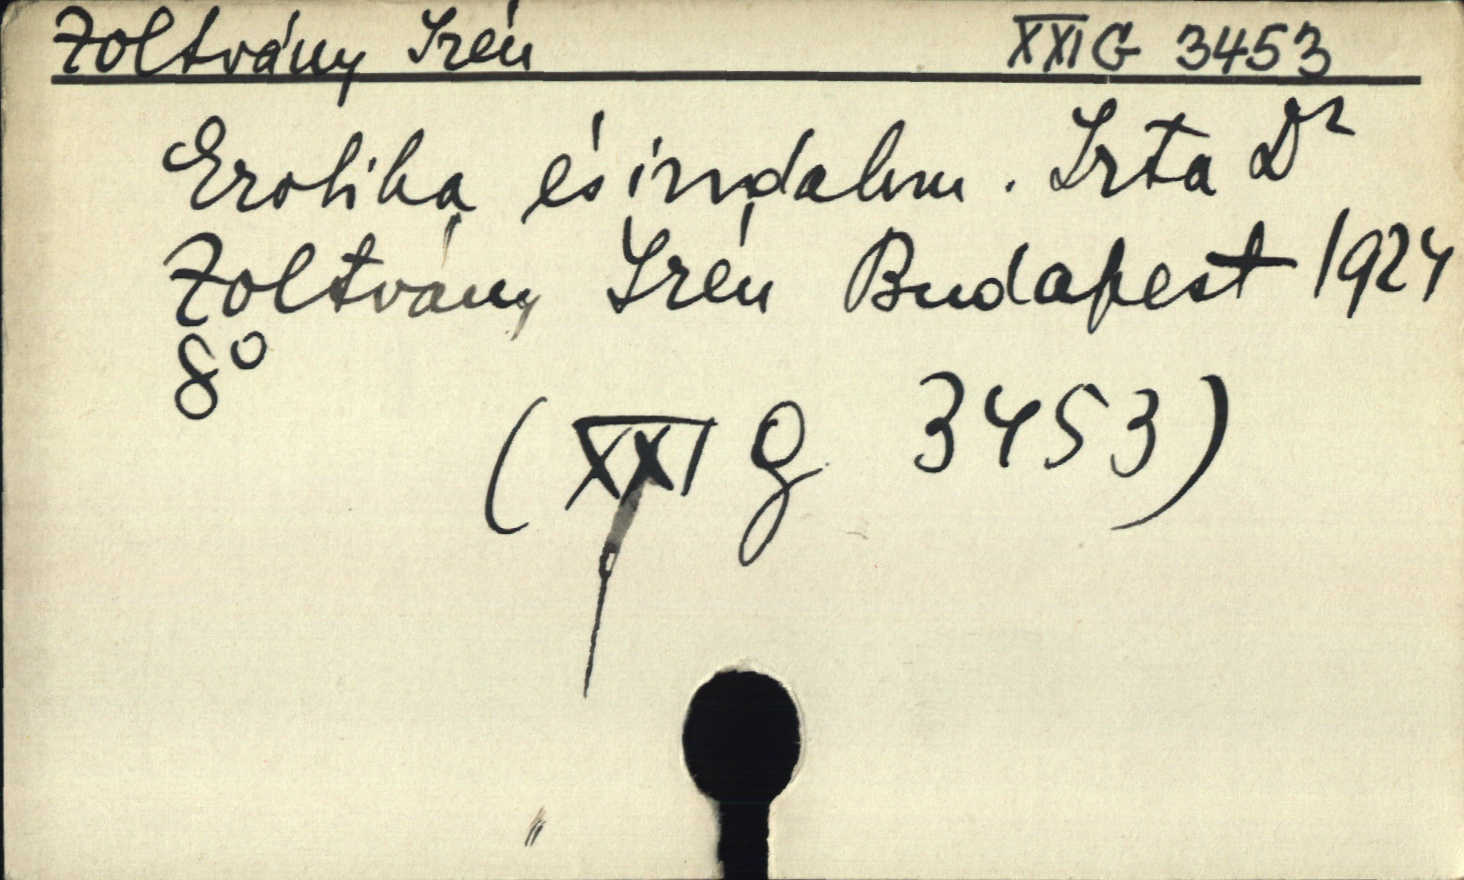 Zoltvány Irén XXI G 3453
Erotika és irodalom. Irta Dr
Zoltvány Irén Budapest 1924
8°
(XXI G 3453)